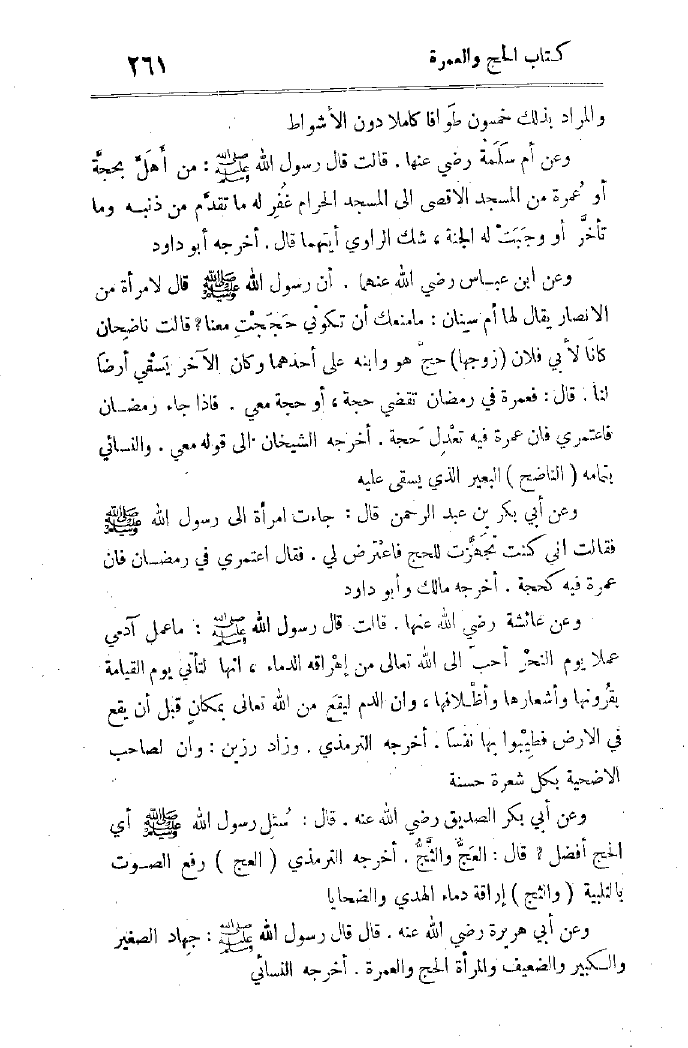 كتاب الحج والعمرة ٢٦١
والمراد بذلك خمسون طَوافا كاملا دون الأشواط
وعن أم سَلَمَة رضي عنها . قالت قال رسول الله ﷺ : من أَهَلَّ بحجةٍ
أو عُمرة من المسجد الاقصى الى المسجد الحرام غُفِر له ما تقدَّم من ذنبه وما
تأخَّر أو وجبَتْ له الجنة ، شك الراوي أيتهما قال . أخرجه أبو داود
وعن ابن عباس رضي الله عنهما . أن رسول الله ﷺ قال لامرأة من
الانصار يقال لها أم سينان : مامنعك أن تكوني حَجَجْتِ معنا ؟ قالت ناضحان
كانا لأبي فلان (زوجها) حجَّ هو وابنه على أحدهما وكان الآخر يَسْقي أرضا
لنا . قال : فعمرة في رمضان تقضي حجة ، أو حجة معي . فاذا جاء رمضان
فاعتمري فان عمرة فيه تعْدِل حَجة . أخرجه الشيخان الى قوله معي . والنسائي
بتمامه ( الناضح ) البعير الذي يسقى عليه
وعن أبي بكر بن عبد الرحمن قال : جاءت امرأة الى رسول الله ﷺ
فقالت اني كنت تَجَهَّزْت للحج فاعْترض لي . فقال اعتمري في رمضان فان
عمرة فيه كحجة . أخرجه مالك وأبو داود
وعن عائشة رضي الله عنها . قالت قال رسول الله ﷺ : ماعمل آدمي
عملا يوم النحْر أحبَّ الى الله تعالى من إهْراقه الدماء ، انها لتأتي يوم القيامة
بقُرونها وأشعارها وأظْلافها ، وان الدم ليقَع من الله تعالى بمكانٍ قبل أن يقع
في الارض فطِيْبوا بها نفسًا . أخرجه الترمذي . وزاد رزين : وان لصاحب
الاضحية بكل شعرة حسنة
وعن أبي بكر الصديق رضي الله عنه . قال : سُئل رسول الله ﷺ أي
الحج أفضل ؟ قال : العَجُّ والثَّجُّ . أخرجه الترمذي ( العج ) رفع الصوت
بالتلبية ( والثج ) إراقة دماء الهدي والضحايا
وعن أبي هريرة رضي الله عنه . قال قال رسول الله ﷺ : جهاد الصغير
والكبير والضعيف والمرأة الحج والعمرة . أخرجه النسائي